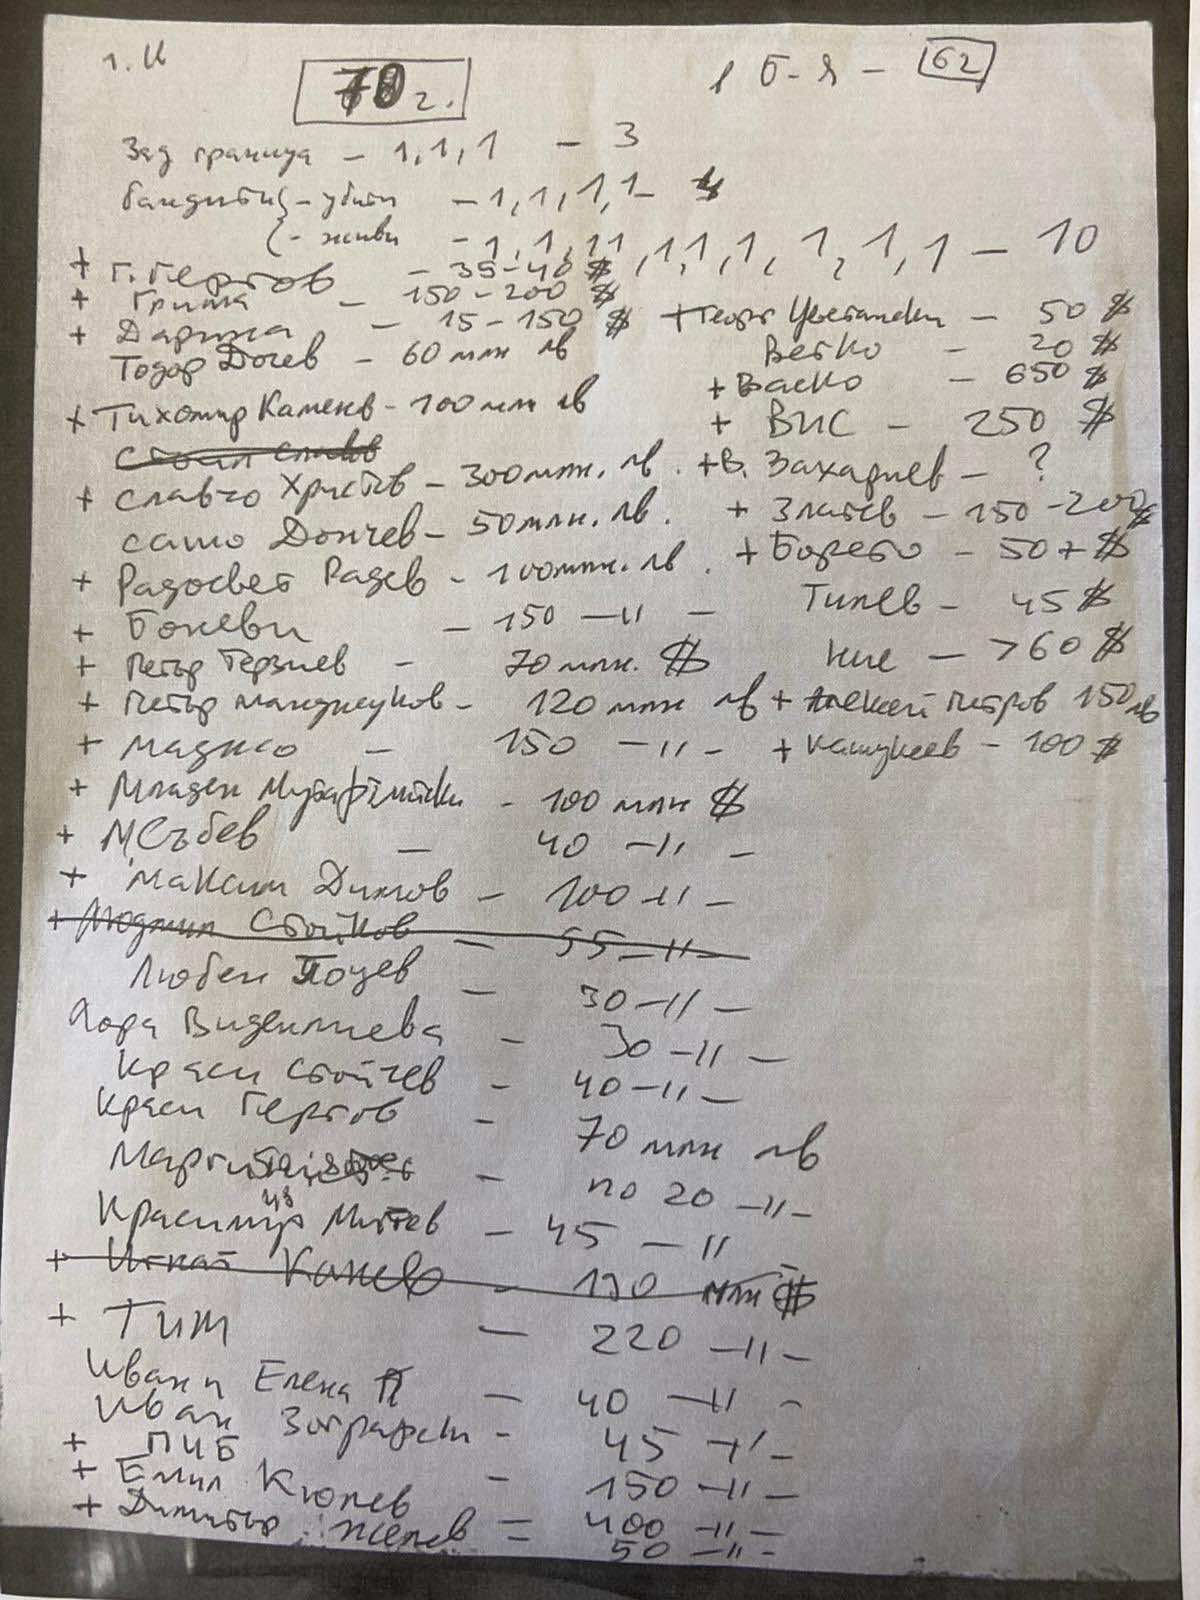 1. И
70 г.
1 б-я - 62
Зад граница - 1,1,1 - 3
бандити - убити - 1,1,1,1 - 4
- живи - 1,1,1,1,1,1,1,1,1,1 - 10
+ Г. Гергов - 35-40 $
+ Грита - 150-200 $
+ Дарина - 15-150 $
Тодор Дочев - 60 млн лв
+ Тихомир Каменов - 100 млн лв
Стоил Славов
+ Славчо Христов - 300 млн. лв.
Сашо Дончев - 50 млн. лв.
+ Радосвет Радев - 100 млн. лв.
+ Боневи - 150 -"-
+ Петър Терзиев - 70 млн. $
+ Петър Манджуков - 120 млн лв
+ Маджо - 150 -"-
+ Младен Мутафчийски - 100 млн $
+ М Събев - 40 -"-
+ Максим Димов - 100 -"-
+ Людмил Стойков - 55 -"-
Любен Поцев - 30 -"-
Хора Виденлиева - 30 -"-
Краси Стойчев - 40 -"-
Краси Гергов - 70 млн лв
- по 20 -"-
Красимир Митев - 45 -"-
+ Игнат Канев - 130 млн $
+ Тим - 220 -"-
Иван и Елена П - 40 -"-
Иван Зографски - 45 -"-
+ ПИБ - 150 -"-
+ Емил Кюлев - 400 -"-
+ Димитър Желев - 50 -"-
+ Георг Цветански - 50 $
Ветко - 20 $
+ Васко - 650 $
+ ВИС - 250 $
+ В. Захариев - ?
+ Златев - 150-200 $
+ Борето - 50+ $
Тилев - 45 $
Ние - >60 $
+ Алексей Петров 150 лв
+ - 100 $